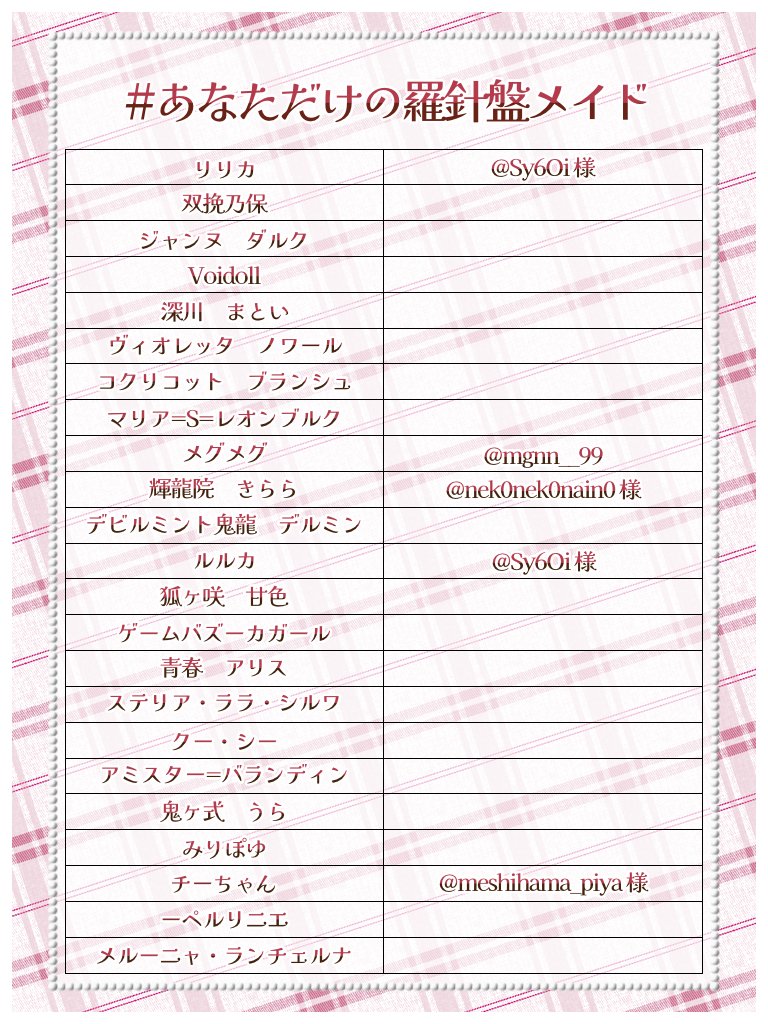 #あなただけの羅針盤メイド
リリカ @Sy6Oi 様
双挽乃保
ジャンヌ　ダルク
Voidoll
深川　まとい
ヴィオレッタ　ノワール
コクリコット　ブランシュ
マリア=S=レオンブルク
メグメグ @mgnn__99
輝龍院　きらら @nek0nek0nain0 様
デビルミント鬼龍　デルミン
ルルカ @Sy6Oi 様
狐ヶ咲　甘色
ゲームバズーカガール
青春　アリス
ステリア・ララ・シルワ
クー・シー
アミスター=バランディン
鬼ヶ式　うら
みりぽゆ
チーちゃん @meshihama_piya 様
一ペルリニエ
メルーニャ・ランチェルナ